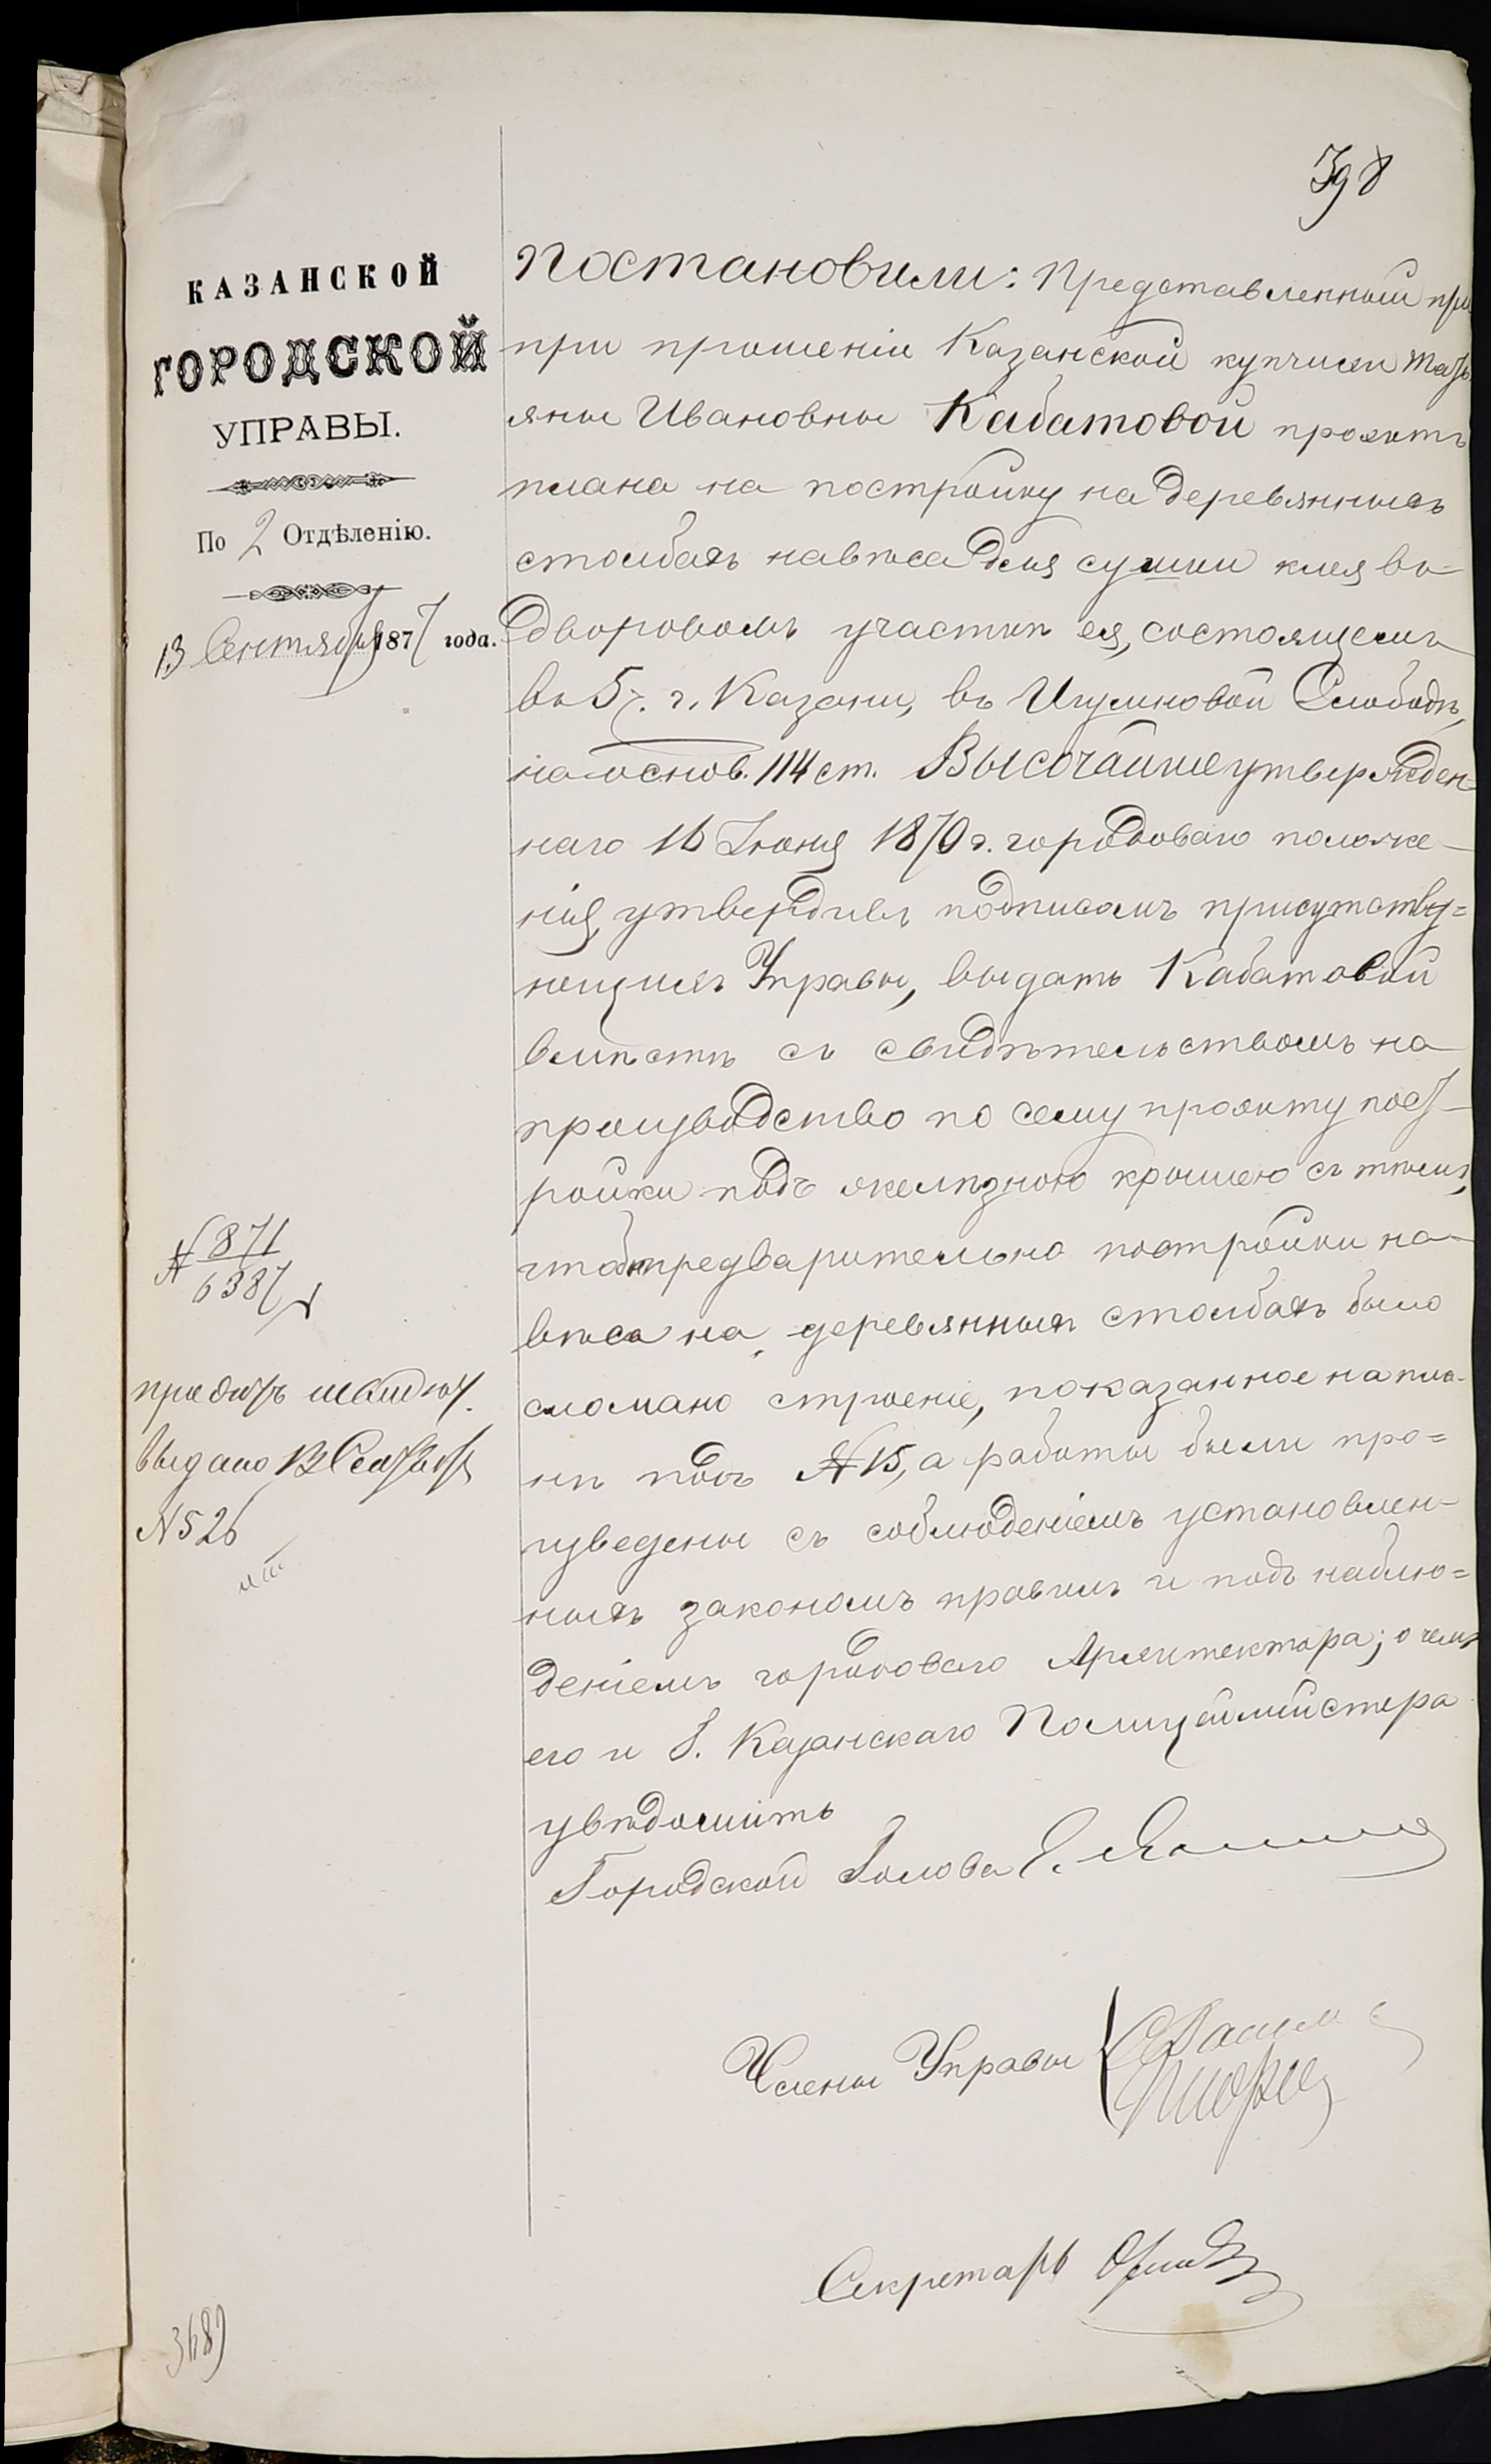 398
КАЗАНСКОЙ
ГОРОДСКОЙ
УПРАВЫ.
По 2 Отдѣленію.
13 Сентября 1877 года.
Постановили: Представленный при
при прошеніи Казанской купчихи Тать
яны Ивановны Кабатовой проэктъ
плана на постройку на деревянныхъ
столбахъ навѣса для сушки клея въ
дворовомъ участкѣ ея, состоящемъ
въ 5 ч. г. Казани, въ Игумновой Слободѣ,
на основ. 114 ст. Высочайше утвержден-
наго 16 Іюня 1870 г. городоваго положе-
нія, утвердивъ подписомъ присутству=
ющихъ Управы, выдать Кабатовой
вмѣстѣ съ свидѣтельствомъ на
производство по сему проэкту пост-
ройки подъ желѣзною крышею съ тѣмъ,
чтобъ предварительно постройки на-
вѣса на деревянныхъ столбахъ было
сломано строеніе, показанное на пла-
нѣ подъ № 15, а работы были про=
изведены съ соблюденіемъ установлен-
ныхъ закономъ правилъ и подъ наблю=
деніемъ городоваго Архитектора; о чемъ
его и Г. Казанскаго Полицеймейстера
увѣдомить
Городской Голова
Члены Управы
Секретарь
№ 871
6387
выдано 13 Сентября
№ 526
3689